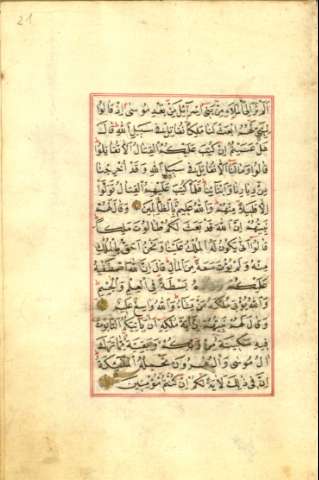 21
اَلَمْ تَرَ اِلَى الْمَلَاِ مِنْ بَنِي اِسْرَائِلَ مِنْ بَعْدِ مُوسَى اِذْ قَالُوا
لِنَبِيٍّ لَهُمُ ابْعَثْ لَنَا مَلِكًا نُقَاتِلْ فِي سَبِيلِ اللهِ قَالَ
هَلْ عَسَيْتُمْ اِنْ كُتِبَ عَلَيْكُمُ الْقِتَالُ اَلَّا تُقَاتِلُوا
قَالُوا وَمَا لَنَا اَلَّا نُقَاتِلَ فِي سَبِيلِ اللهِ وَقَدْ اُخْرِجْنَا
مِنْ دِيَارِنَا وَاَبْنَائِنَا فَلَمَّا كُتِبَ عَلَيْهِمُ الْقِتَالُ تَوَلَّوْا
اِلَّا قَلِيلًا مِنْهُمْ وَاللهُ عَلِيمٌ بِالظَّالِمِينَ وَقَالَ لَهُمْ
نَبِيُّهُمْ اِنَّ اللهَ قَدْ بَعَثَ لَكُمْ طَالُوتَ مَلِكًا
قَالُوا اَنَّى يَكُونُ لَهُ الْمُلْكُ عَلَيْنَا وَنَحْنُ اَحَقُّ بِالْمُلْكِ
مِنْهُ وَلَمْ يُؤْتَ سَعَةً مِنَ الْمَالِ قَالَ اِنَّ اللهَ اصْطَفٰيهُ
عَلَيْكُمْ وَزَادَهُ بَسْطَةً فِي الْعِلْمِ وَالْجِسْمِ
وَاللهُ يُؤْتِي مُلْكَهُ مَنْ يَشَاءُ وَاللهُ وَاسِعٌ عَلِيمٌ
وَقَالَ لَهُمْ نَبِيُّهُمْ اِنَّ اٰيَةَ مُلْكِهِ اَنْ يَاْتِيَكُمُ التَّابُوتُ
فِيهِ سَكِينَةٌ مِنْ رَبِّكُمْ وَبَقِيَّةٌ مِمَّا تَرَكَ
اٰلُ مُوسٰى وَاٰلُ هٰرُونَ تَحْمِلُهُ الْمَلٰئِكَةُ
اِنَّ فِي ذٰلِكَ لَاٰيَةً لَكُمْ اِنْ كُنْتُمْ مُؤْمِنِينَ